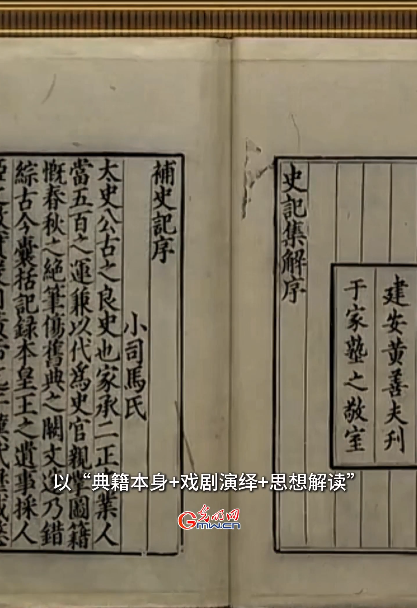 建安黃善夫刊
于家塾之敬室
史記集解序
補史記序
小司馬氏
太史公古之良史也家承二正之業人
當五百之運兼以代爲史官親掌圖籍
慨春秋之絕筆傷舊典之闕文遂乃錯
綜古今囊括記錄本皇王之遺事採人
以“典籍本身+戏剧演绎+思想解读”
光明网
GMW.cn